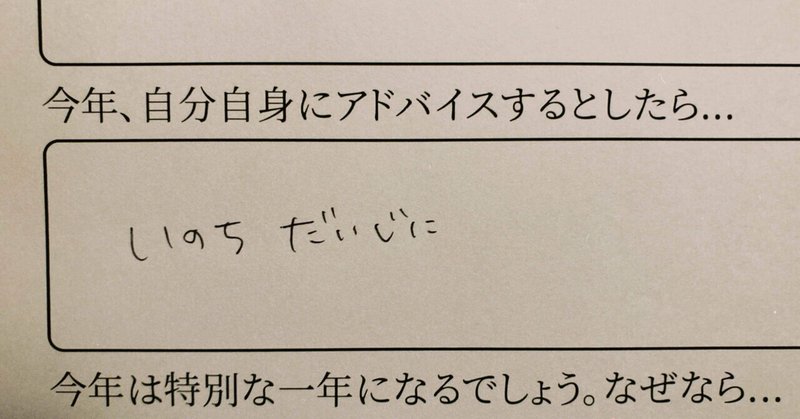 今年、自分自身にアドバイスするとしたら...
いのち だいじに
今年は特別な一年になるでしょう。なぜなら...